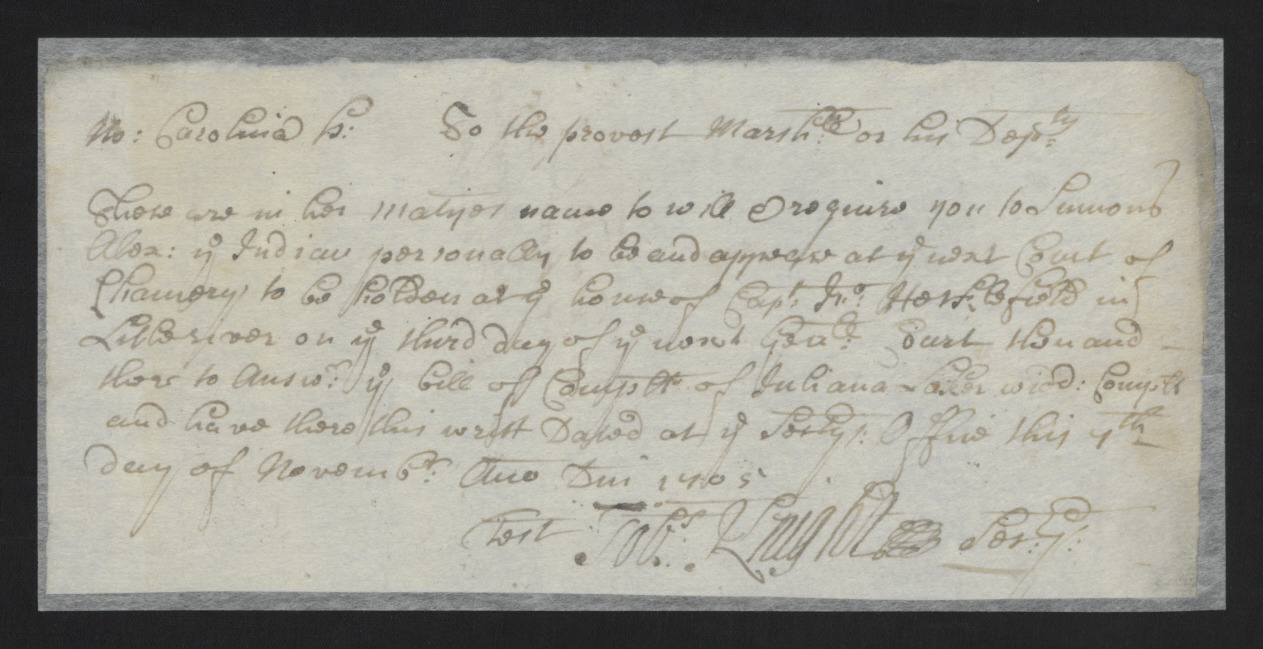 No: Carolina ss: To the provost Marshall or his Depty
These are in her Matyes name to will & require you to Sumons
Alex: ye Indian personally to be and appeare at ye next Court of
Chancery to be holden at ye house of Capt. Jno. Hecklefield in
Little river on ye third day of ye next Genall. Court then and
there to Answr. ye bill of Complt of Juliana widd: Complt
and have there this writt Dated at ye Secrys: Office this 7th
day of Novembr. Ano Dni 1705
Test Tobs. Knight Secry: